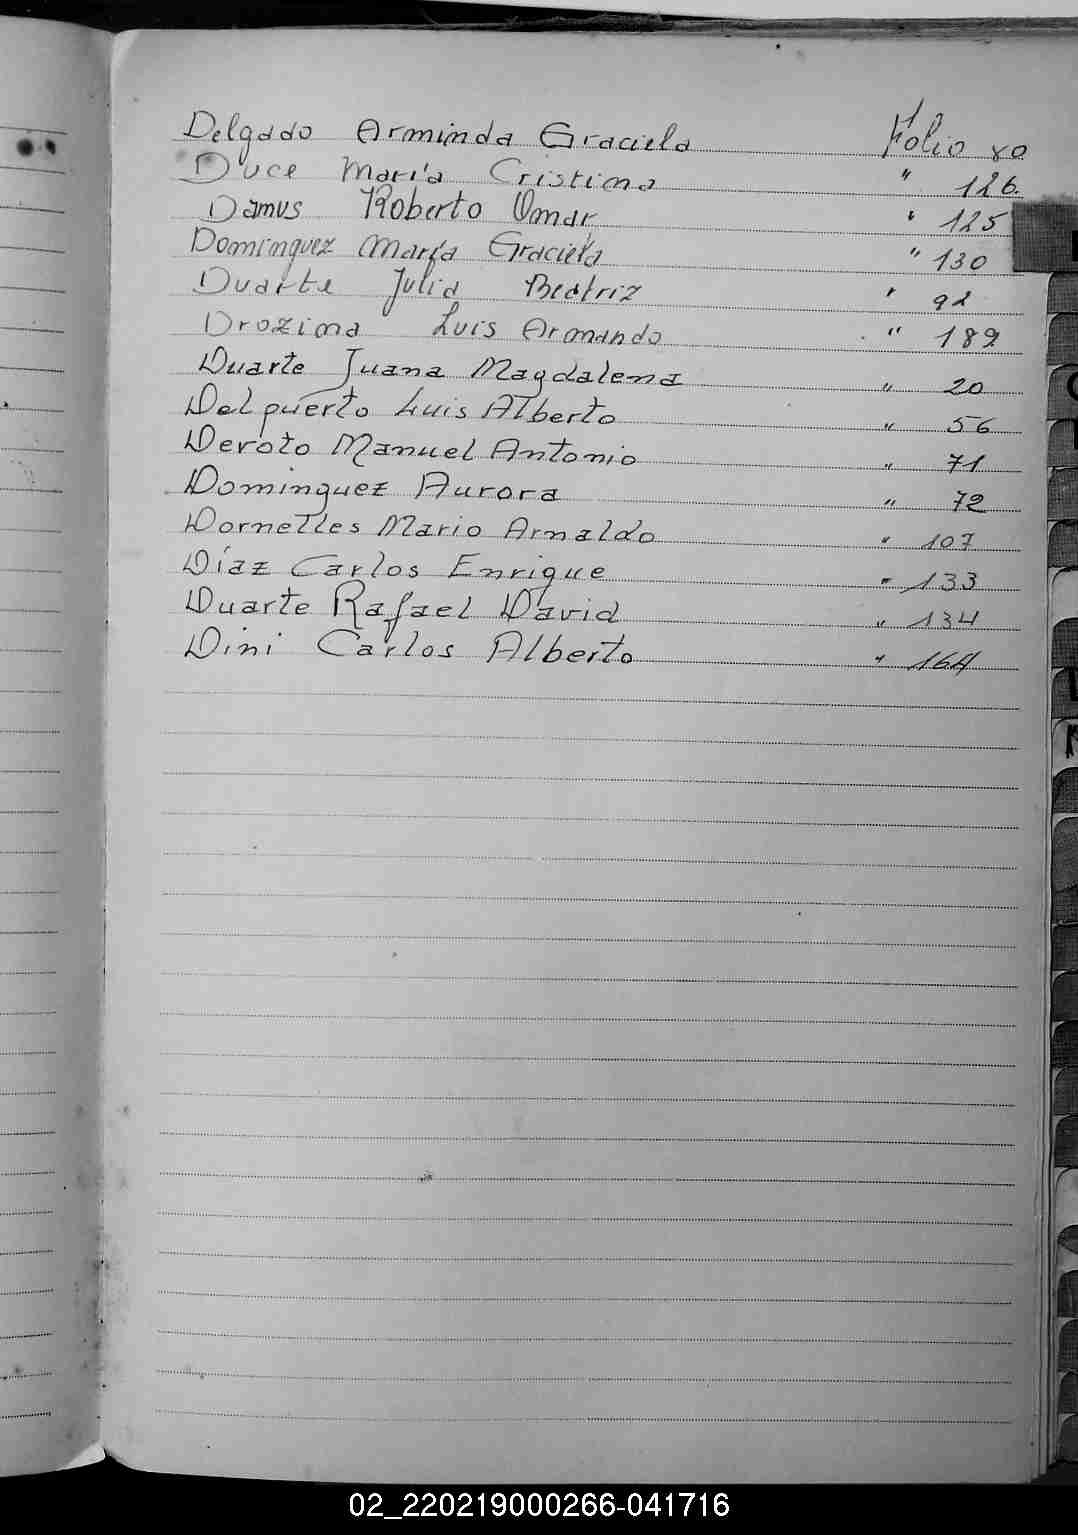 Delgado Arminda Graciela Folio 80
Duce María Cristina " 126.
Damus Roberto Omar " 125
Dominguez María Graciela " 130
Duarte Julia Beatriz " 92
Drozina Luis Armando " 189
Duarte Juana Magdalena " 20
Delpuerto Luis Alberto " 56
Devoto Manuel Antonio " 71
Dominguez Aurora " 72
Dornelles Mario Arnaldo " 107
Díaz Carlos Enrique " 133
Duarte Rafael David " 134
Dini Carlos Alberto " 164
02_220219000266-041716